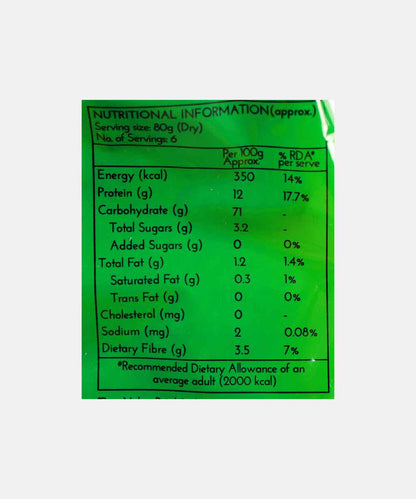 NUTRITIONAL INFORMATION(approx.)
Serving size: 80g (Dry)
No. of Servings: 6
Per 100g Approx. % RDA# per serve
Energy (kcal) 350 14%
Protein (g) 12 17.7%
Carbohydrate (g) 71 -
Total Sugars (g) 3.2 -
Added Sugars (g) 0 0%
Total Fat (g) 1.2 1.4%
Saturated Fat (g) 0.3 1%
Trans Fat (g) 0 0%
Cholesterol (mg) 0 -
Sodium (mg) 2 0.08%
Dietary Fibre (g) 3.5 7%
#Recommended Dietary Allowance of an
average adult (2000 kcal)